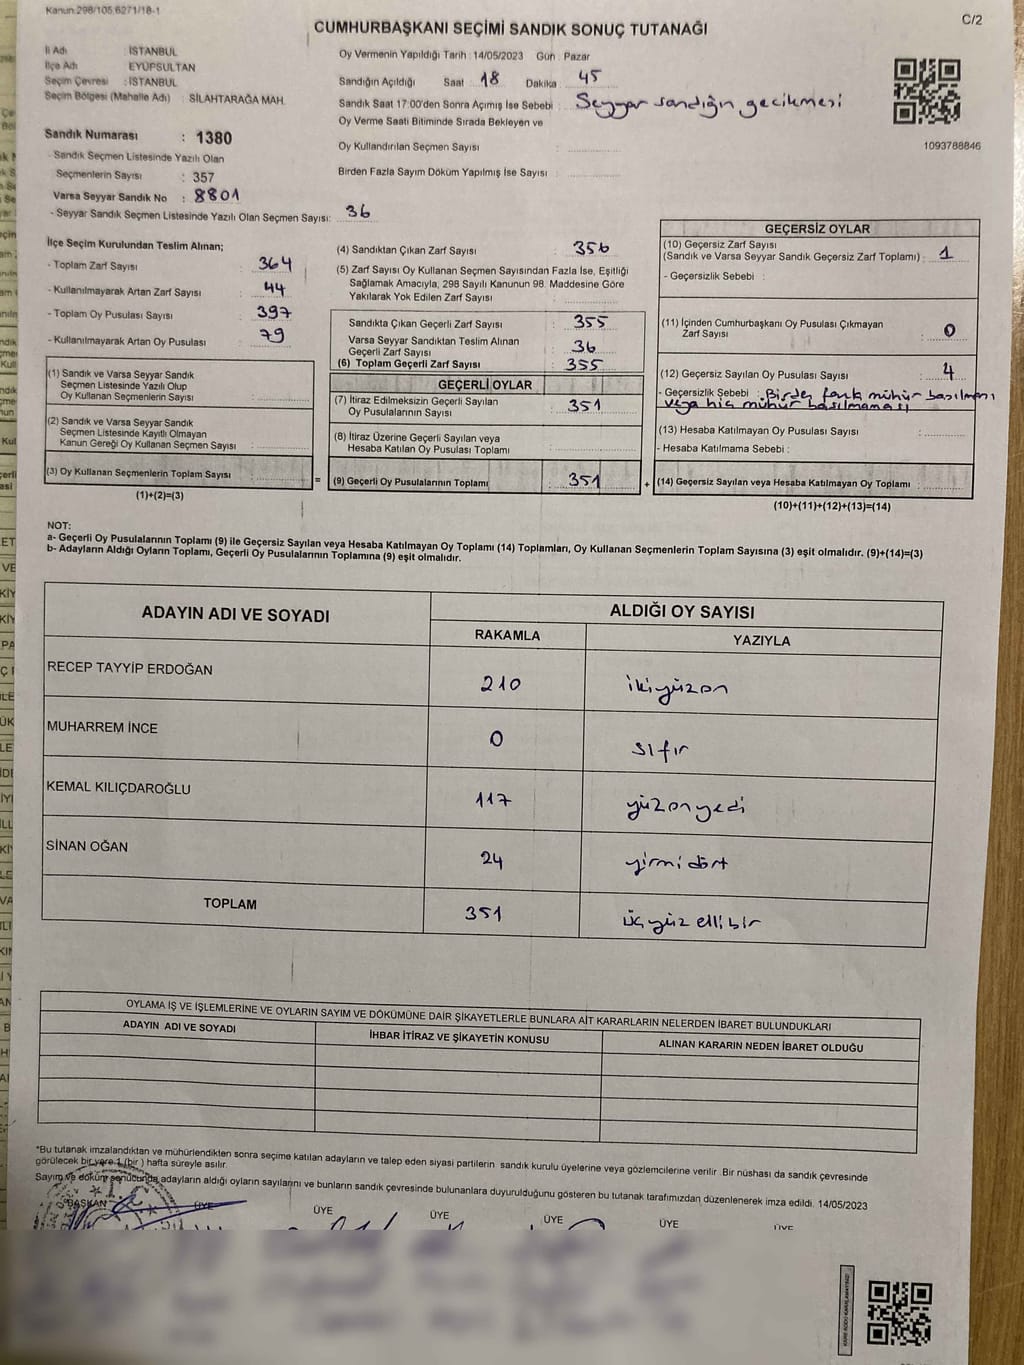 Kanun:298/105,6271/18-1
C/2
CUMHURBAŞKANI SEÇİMİ SANDIK SONUÇ TUTANAĞI
İl Adı : İSTANBUL
İlçe Adı : EYÜPSULTAN
Seçim Çevresi : İSTANBUL
Seçim Bölgesi (Mahalle Adı) : SİLAHTARAĞA MAH.
Oy Vermenin Yapıldığı Tarih : 14/05/2023 Gün : Pazar
Sandığın Açıldığı Saat : 18 Dakika : 45
Sandık Saat 17:00'den Sonra Açımış İse Sebebi : Seyyar sandığın gecikmesi
Oy Verme Saati Bitiminde Sırada Bekleyen ve
Oy Kullandırılan Seçmen Sayısı :
Birden Fazla Sayım Döküm Yapılmış İse Sayısı :
1093788846
Sandık Numarası : 1380
- Sandık Seçmen Listesinde Yazılı Olan
Seçmenlerin Sayısı : 357
Varsa Seyyar Sandık No : 8801
- Seyyar Sandık Seçmen Listesinde Yazılı Olan Seçmen Sayısı: 36
İlçe Seçim Kurulundan Teslim Alınan;
- Toplam Zarf Sayısı : 364
- Kullanılmayarak Artan Zarf Sayısı : 44
- Toplam Oy Pusulası Sayısı : 397
- Kullanılmayarak Artan Oy Pusulası : 79
(1) Sandık ve Varsa Seyyar Sandık
Seçmen Listesinde Yazılı Olup
Oy Kullanan Seçmenlerin Sayısı :
(2) Sandık ve Varsa Seyyar Sandık
Seçmen Listesinde Kayıtlı Olmayan
Kanun Gereği Oy Kullanan Seçmen Sayısı :
(3) Oy Kullanan Seçmenlerin Toplam Sayısı :
(1)+(2)=(3)
(4) Sandıktan Çıkan Zarf Sayısı : 356
(5) Zarf Sayısı Oy Kullanan Seçmen Sayısından Fazla İse, Eşitliği
Sağlamak Amacıyla, 298 Sayılı Kanunun 98. Maddesine Göre
Yakılarak Yok Edilen Zarf Sayısı :
Sandıkta Çıkan Geçerli Zarf Sayısı : 355
Varsa Seyyar Sandıktan Teslim Alınan
Geçerli Zarf Sayısı : 36
(6) Toplam Geçerli Zarf Sayısı : 355
GEÇERLİ OYLAR
(7) İtiraz Edilmeksizin Geçerli Sayılan
Oy Pusulalarının Sayısı : 351
(8) İtiraz Üzerine Geçerli Sayılan veya
Hesaba Katılan Oy Pusulası Toplamı :
= (9) Geçerli Oy Pusulalarının Toplamı : 351 +
GEÇERSİZ OYLAR
(10) Geçersiz Zarf Sayısı
(Sandık ve Varsa Seyyar Sandık Geçersiz Zarf Toplamı) : 1
- Geçersizlik Sebebi :
(11) İçinden Cumhurbaşkanı Oy Pusulası Çıkmayan
Zarf Sayısı : 0
(12) Geçersiz Sayılan Oy Pusulası Sayısı : 4
- Geçersizlik Sebebi : Birden fazla mühür basılması
veya hiç mühür basılmaması
(13) Hesaba Katılmayan Oy Pusulası Sayısı :
- Hesaba Katılmama Sebebi :
(14) Geçersiz Sayılan veya Hesaba Katılmayan Oy Toplamı :
(10)+(11)+(12)+(13)=(14)
NOT:
a- Geçerli Oy Pusulalarının Toplamı (9) ile Geçersiz Sayılan veya Hesaba Katılmayan Oy Toplamı (14) Toplamları, Oy Kullanan Seçmenlerin Toplam Sayısına (3) eşit olmalıdır. (9)+(14)=(3)
b- Adayların Aldığı Oyların Toplamı, Geçerli Oy Pusulalarının Toplamına (9) eşit olmalıdır.
ADAYIN ADI VE SOYADI
ALDIĞI OY SAYISI
RAKAMLA YAZIYLA
RECEP TAYYİP ERDOĞAN 210 ikiyüzon
MUHARREM İNCE 0 sıfır
KEMAL KILIÇDAROĞLU 117 yüzonyedi
SİNAN OĞAN 24 yirmidört
TOPLAM 351 üçyüzellibir
OYLAMA İŞ VE İŞLEMLERİNE VE OYLARIN SAYIM VE DÖKÜMÜNE DAİR ŞİKAYETLERLE BUNLARA AİT KARARLARIN NELERDEN İBARET BULUNDUKLARI
ADAYIN ADI VE SOYADI İHBAR İTİRAZ VE ŞİKAYETİN KONUSU ALINAN KARARIN NEDEN İBARET OLDUĞU
*Bu tutanak imzalandıktan ve mühürlendikten sonra seçime katılan adayların ve talep eden siyasi partilerin sandık kurulu üyelerine veya gözlemcilerine verilir. Bir nüshası da sandık çevresinde
görülecek bir yere 1 (bir ) hafta süreyle asılır.
Sayım ve döküm sonucunda adayların aldığı oyların sayılarını ve bunların sandık çevresinde bulunanlara duyurulduğunu gösteren bu tutanak tarafımızdan düzenlenerek imza edildi. 14/05/2023
BAŞKAN ÜYE ÜYE ÜYE ÜYE ÜYE ÜYE
T.C.